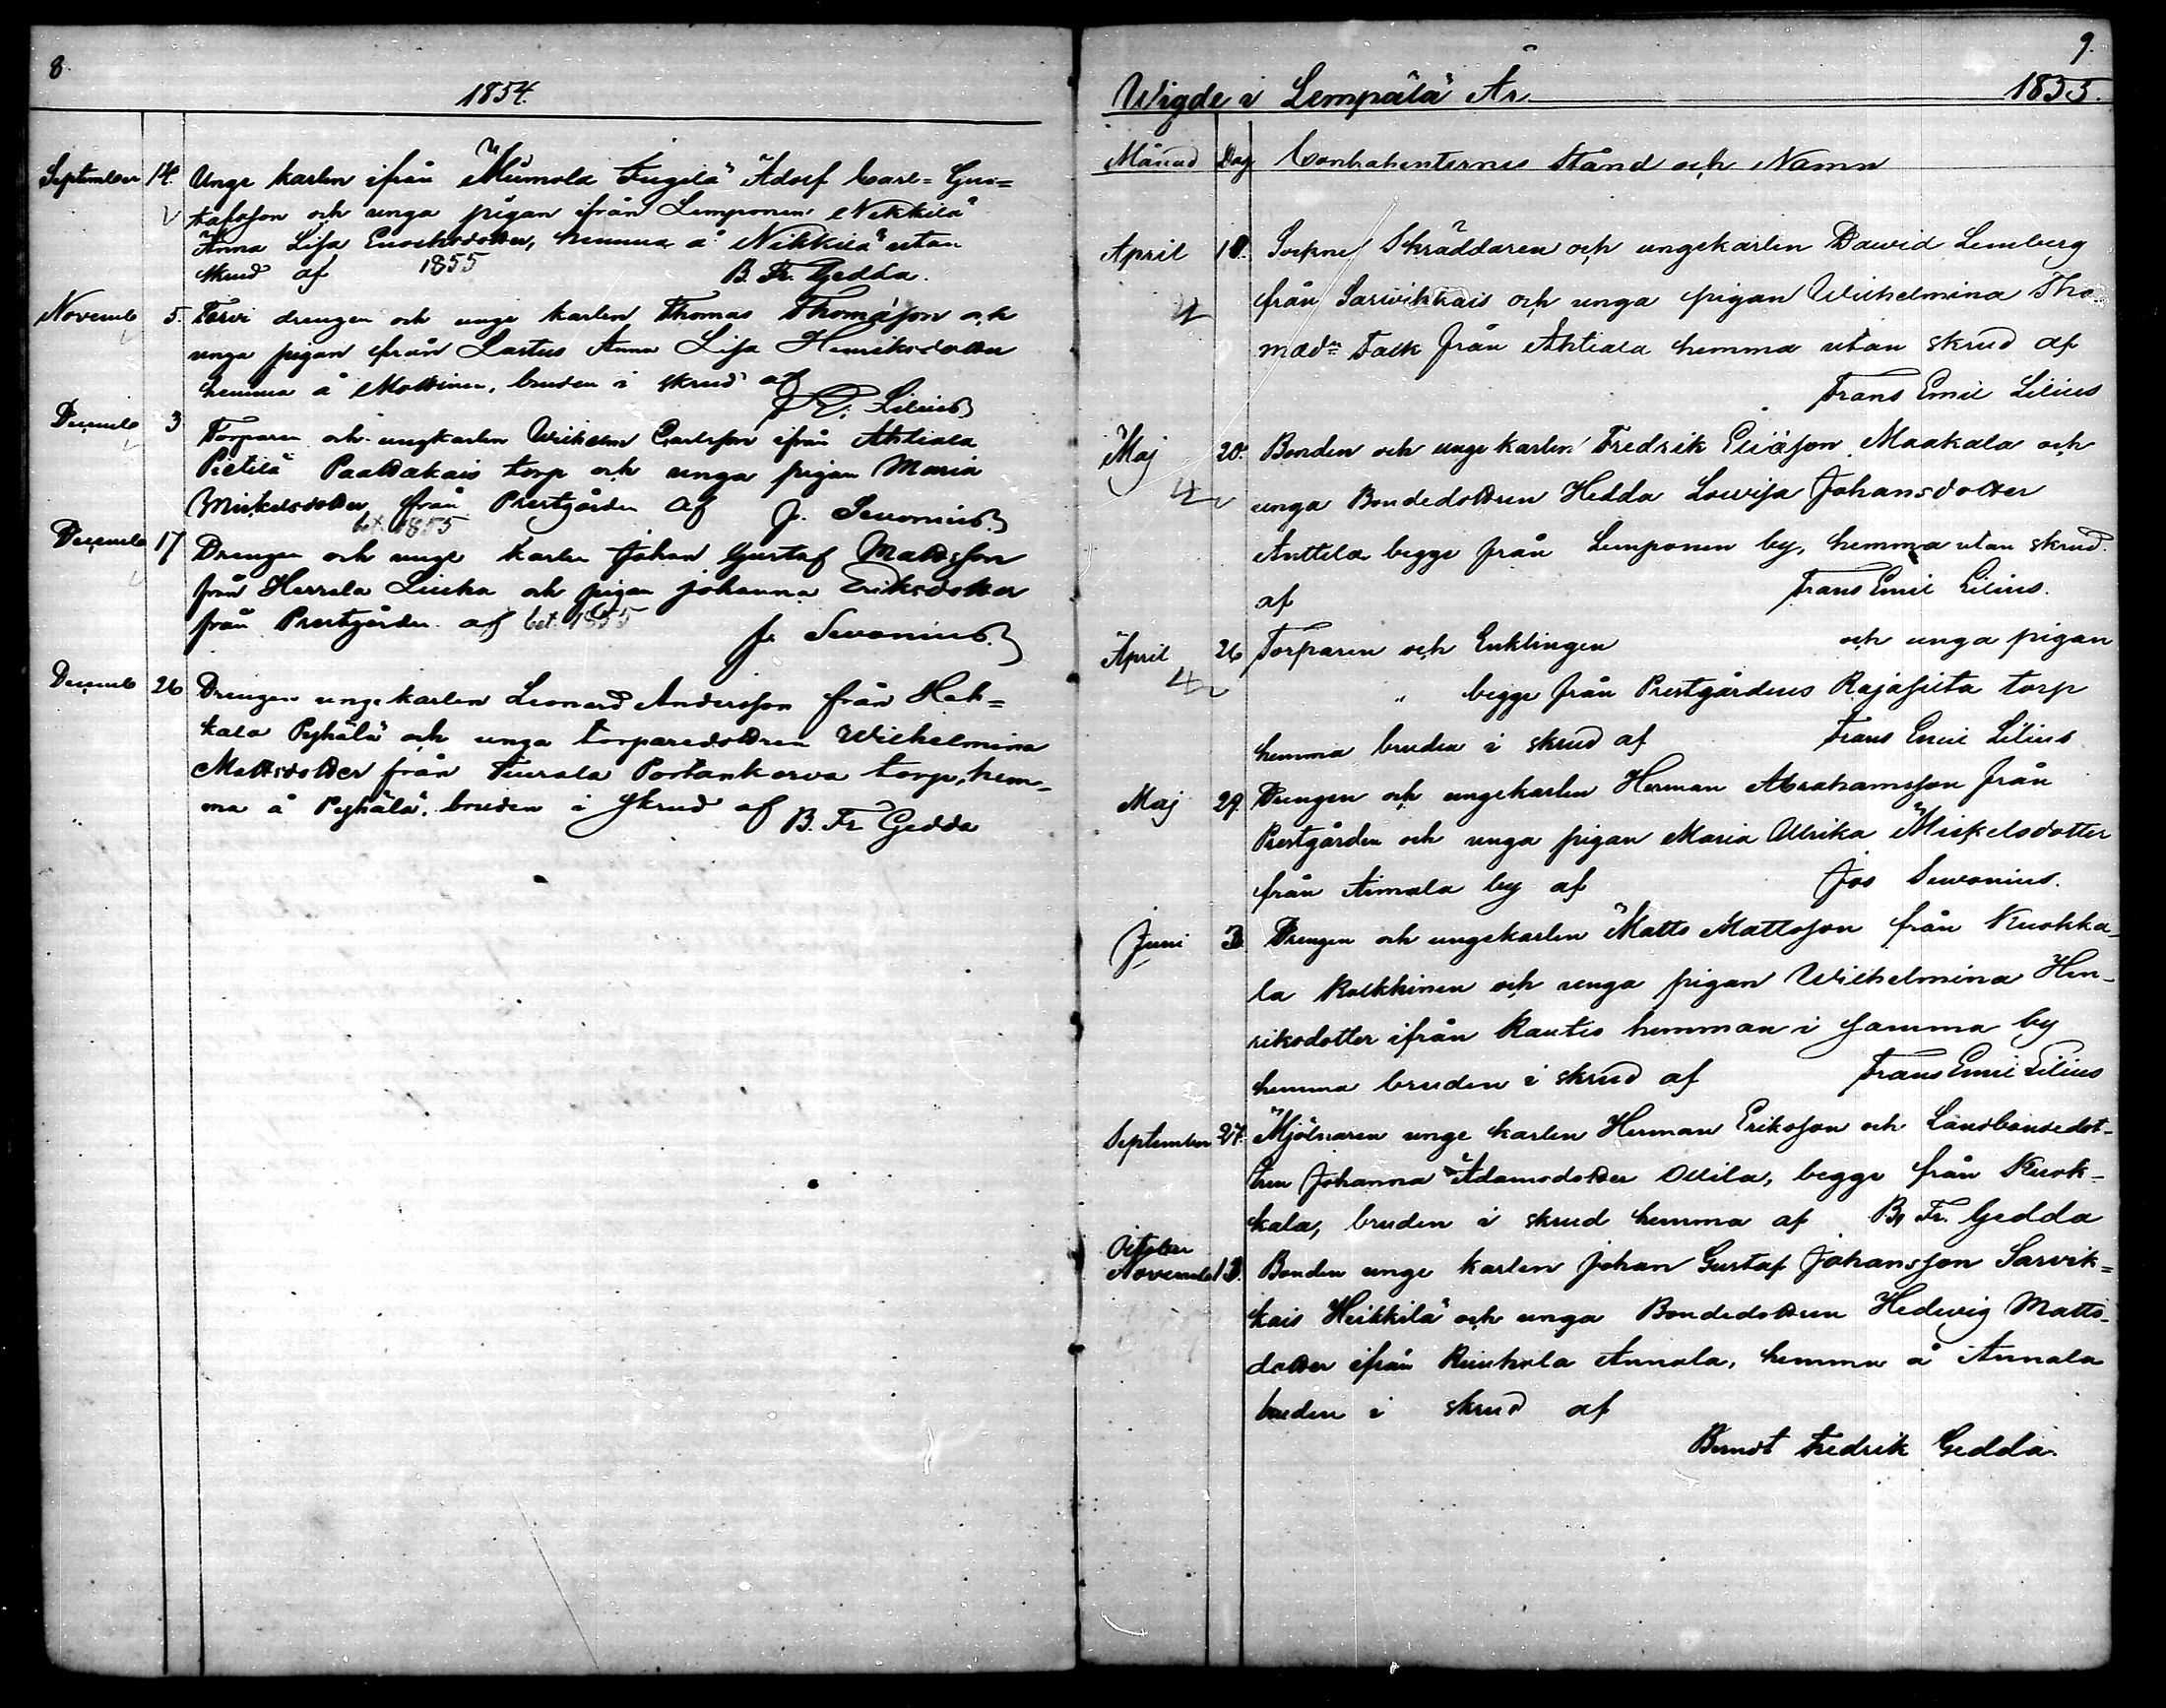 8.
1854.
September 14. Unge karlen ifrån Mumola Zeigilä Adolf Carl=Gus=
tafsson och unga pigan ifrån Lemponen Nikkilä
Anna Lisa Enochsdotter, hemma å Nikkilä utan
skrud af 1855 B. Fr. Gedda.
Novemb 5. drengen och unge karlen Thomas Thomasson och
unga pigan från Lastus Anna Lisa Henriksdotter
hemma å Mottinen, bruden i skrud af
Lilius
Decemb 3 Torparen och ungkarlen Wilhelm Carlsson ifrån Ahtiala
Pietilä torp och unga pigan Maria
Mickelsdotter från Prestgården af J. Sevonius.
bet. 1855
Decemb 17 Drengen och unge karlen Johan Gustaf Mattsson
från Herrala Liuha och pigan Johanna Eriksdotter
från Prestgården af bet. 1855 J. Sevonius.
Decemb 26 Drengen unge karlen Leonard Andersson från Hek=
kala Pyhälä och unga torparedottren Wilhelmina
Mattsdotter från Tuurala Portankorva torp, hem-
ma å Pyhälä, bruden i skrud af B. Fr Gedda
9.
Wigde i Lempälä År 1855.
Månad Dag Contrahenternes Stånd och Namn
April 18. Sockne Skräddaren och ungekarlen Dawid Lemberg
från Sarvikkais och unga pigan Wilhelmina Tho
masdr Falk från Ahtiala hemma utan skrud af
Frans Emil Lilius
Maj 20. Bonden och unge karlen Fredrik Eliasson Maakala och
unga Bondedottren Hedda Lovisa Johansdotter
Anttila begge från Lemponen by, hemma utan skrud.
af Frans Emil Lilius.
April 26 Torparen och Enklingen och unga pigan
" begge från Prestgårdens Rajasilta torp
hemma bruden i skrud af Frans Emil Lilius
Maj 29. Drengen och ungekarlen Herman Abrahamsson från
Prestgården och unga pigan Maria Ullrika Mickelsdotter
från Aimala by af Jos Sevonius.
Juni 3. Drengen och ungekarlen Matts Mattsson från Kuokka-
la Rukkinen och unga pigan Wilhelmina Hen-
riksdotter ifrån Rautis hemman i samma by
hemma bruden i skrud af Frans Emil Lilius
September 27. Mjölnaren unge karlen Herman Eriksson och Landbondedot-
tren Johanna Adamsdotter Ollila, begge från Kuok-
kala, bruden i skrud hemma af B. Fr. Gedda
October
Novemb 13. Bonden unge karlen Johan Gustaf Johansson Sarvik=
kais Heikkilä och unga Bondedottren Hedevig Matts-
dotter ifrån Kuukola Annala, hemma å Annala
bruden i skrud af
Berndt Fredrik Gedda.